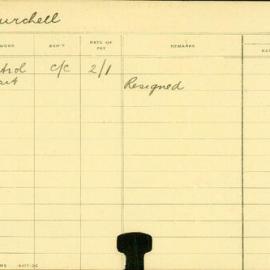 urchell
WORK DEP'T RATE OF PAY REMARKS
trol c/c 2/1
Resigned